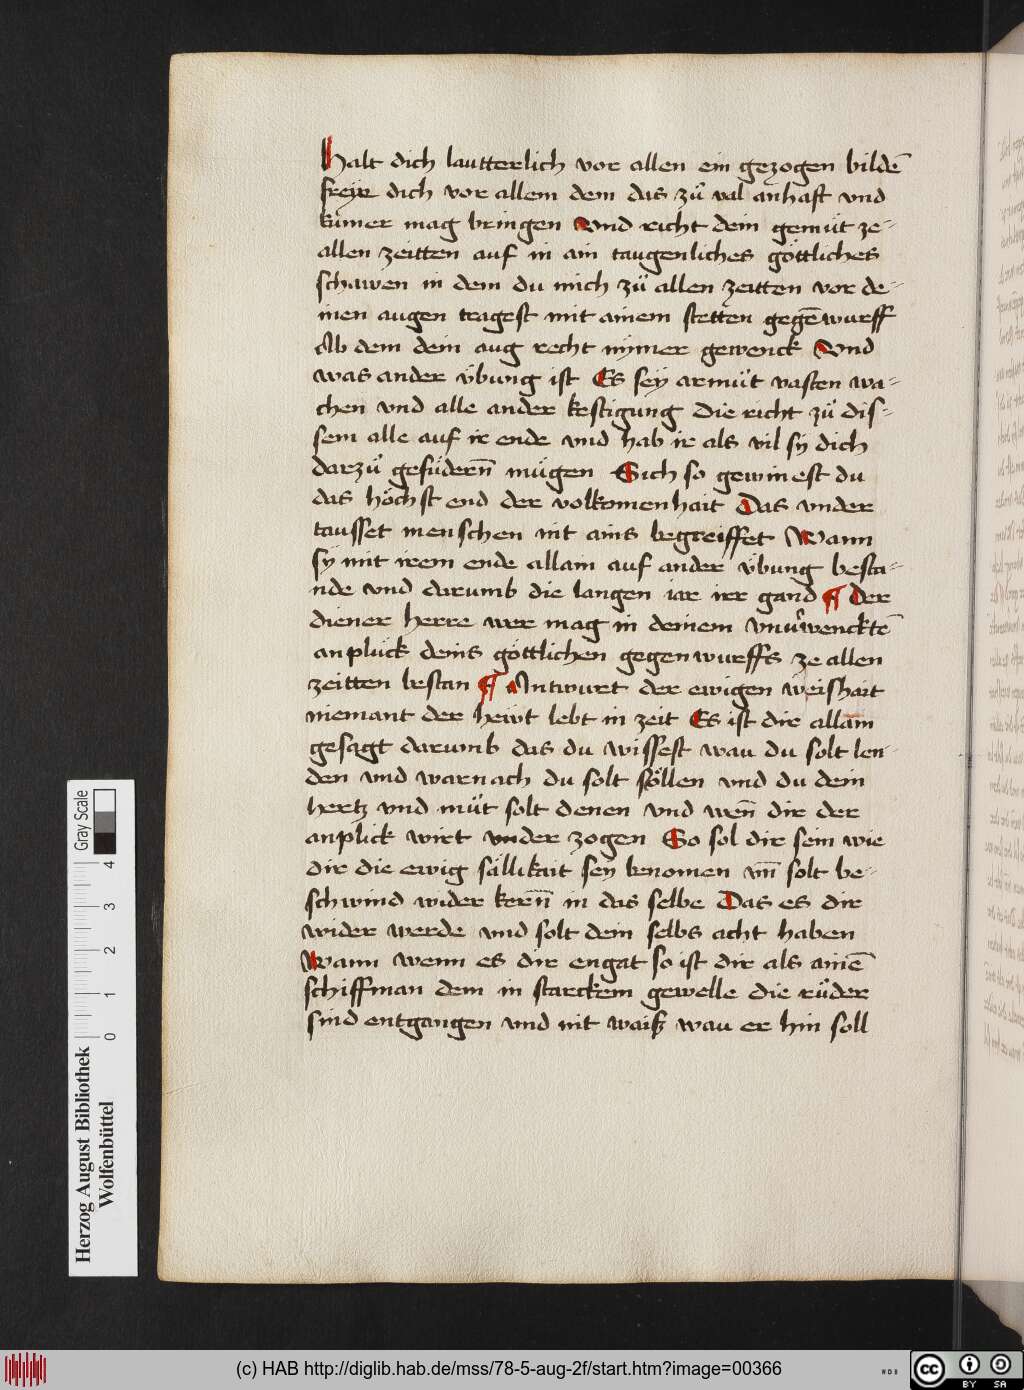 Halt dich lautterlich vor allen ein gezogen bildē
freÿ dich vor allem dem das zů val anhaft vnd
kümer mag bringen Vnd richt dein gemüt ze-
allen zeitten auf in ain taugenliches göttliches
schawen in dem du mich zů allen zeitten vor de-
inen augen tragest mit ainem stetten gegēwurff
Ab dem dein aug recht nÿmer gewenck Vnd
was ander v̈bung ist Es seÿ armůt vasten wa-
chen vnd alle ander kestigung Die richt zů dis-
sem alle auf ir ende vnd hab ir als vil sÿ dich
darzů gefüdern̄ mügen Sich so gewinest du
das höchst end der volkomenhait Das vnder
tausset menschen nit ains begreiffet Wann
sÿ mit irem ende allain auf ander v̈bung besta-
nde vnd darumb die langen iar irr gand ¶ Der
diener herre wer mag in deinem vnuͤwencktē
anplück deins göttlichen gegenwurffs ze allen
zeitten bestan ¶ Antwurt der ewigen weishait
niemant der hewt lebt in zeit Es ist dir allain
gesagt darumb das du wissest wau du solt len-
den vnd warnach du solt söllen vnd du dein
hertz vnd müt solt denen vnd wen̄ dir der
anplick wirt vnder zogen So sol dir sein wie
dir die ewig sällikait seÿ benomen vn̄ solt be-
schwind wider kern̄ in das selbe Das es dir
wider werde vnd solt dein selbs acht haben
Wann wenn es dir engat so ist dir als ainē
schiffman dem in starckem gewelle die růder
sind entgangen vnd nit waiß wau er hin soll
Herzog August Bibliothek
Wolfenbüttel
Gray Scale
0 1 2 3 4
(c) HAB http://diglib.hab.de/mss/78-5-aug-2f/start.htm?image=00366
WDB
cc BY SA